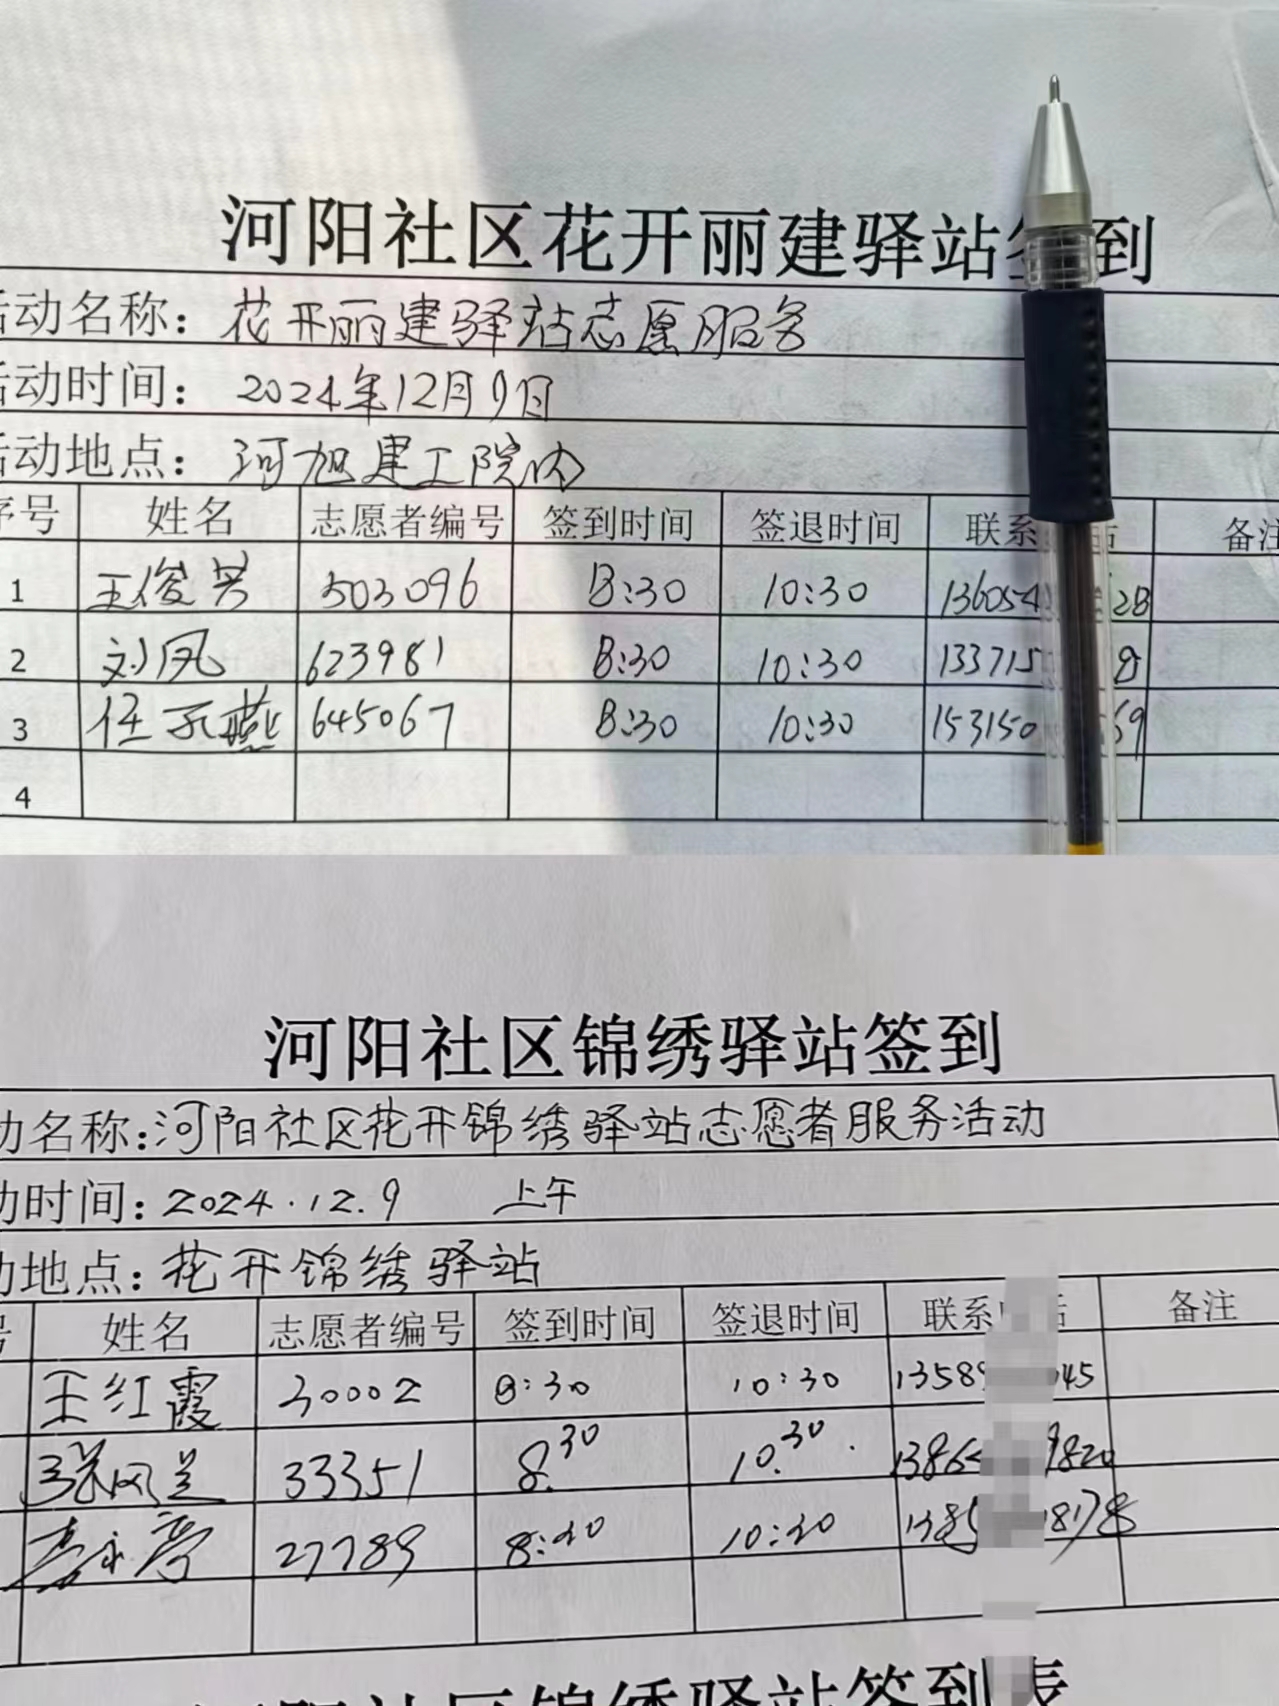 河阳社区花开丽建驿站签到
活动名称：花开丽建驿站志愿服务
活动时间：2024年12月9日
活动地点：河旭建工院内
序号 姓名 志愿者编号 签到时间 签退时间 联系 话 备注
1 王俊英 503096 8:30 10:30 136054 28
2 刘凤 623981 8:30 10:30 133715 8
3 任玉燕 645067 8:30 10:30 153150 69
4
河阳社区锦绣驿站签到
动名称：河阳社区花开锦绣驿站志愿者服务活动
动时间：2024.12.9 上午
动地点：花开锦绣驿站
号 姓名 志愿者编号 签到时间 签退时间 联系 话 备注
王红霞 30002 8:30 10:30 13589 045
张风兰 33351 8.30 10.30. 13864 9820
27789 8:30 10:30 1385 8178
河阳社区锦绣驿站签到表